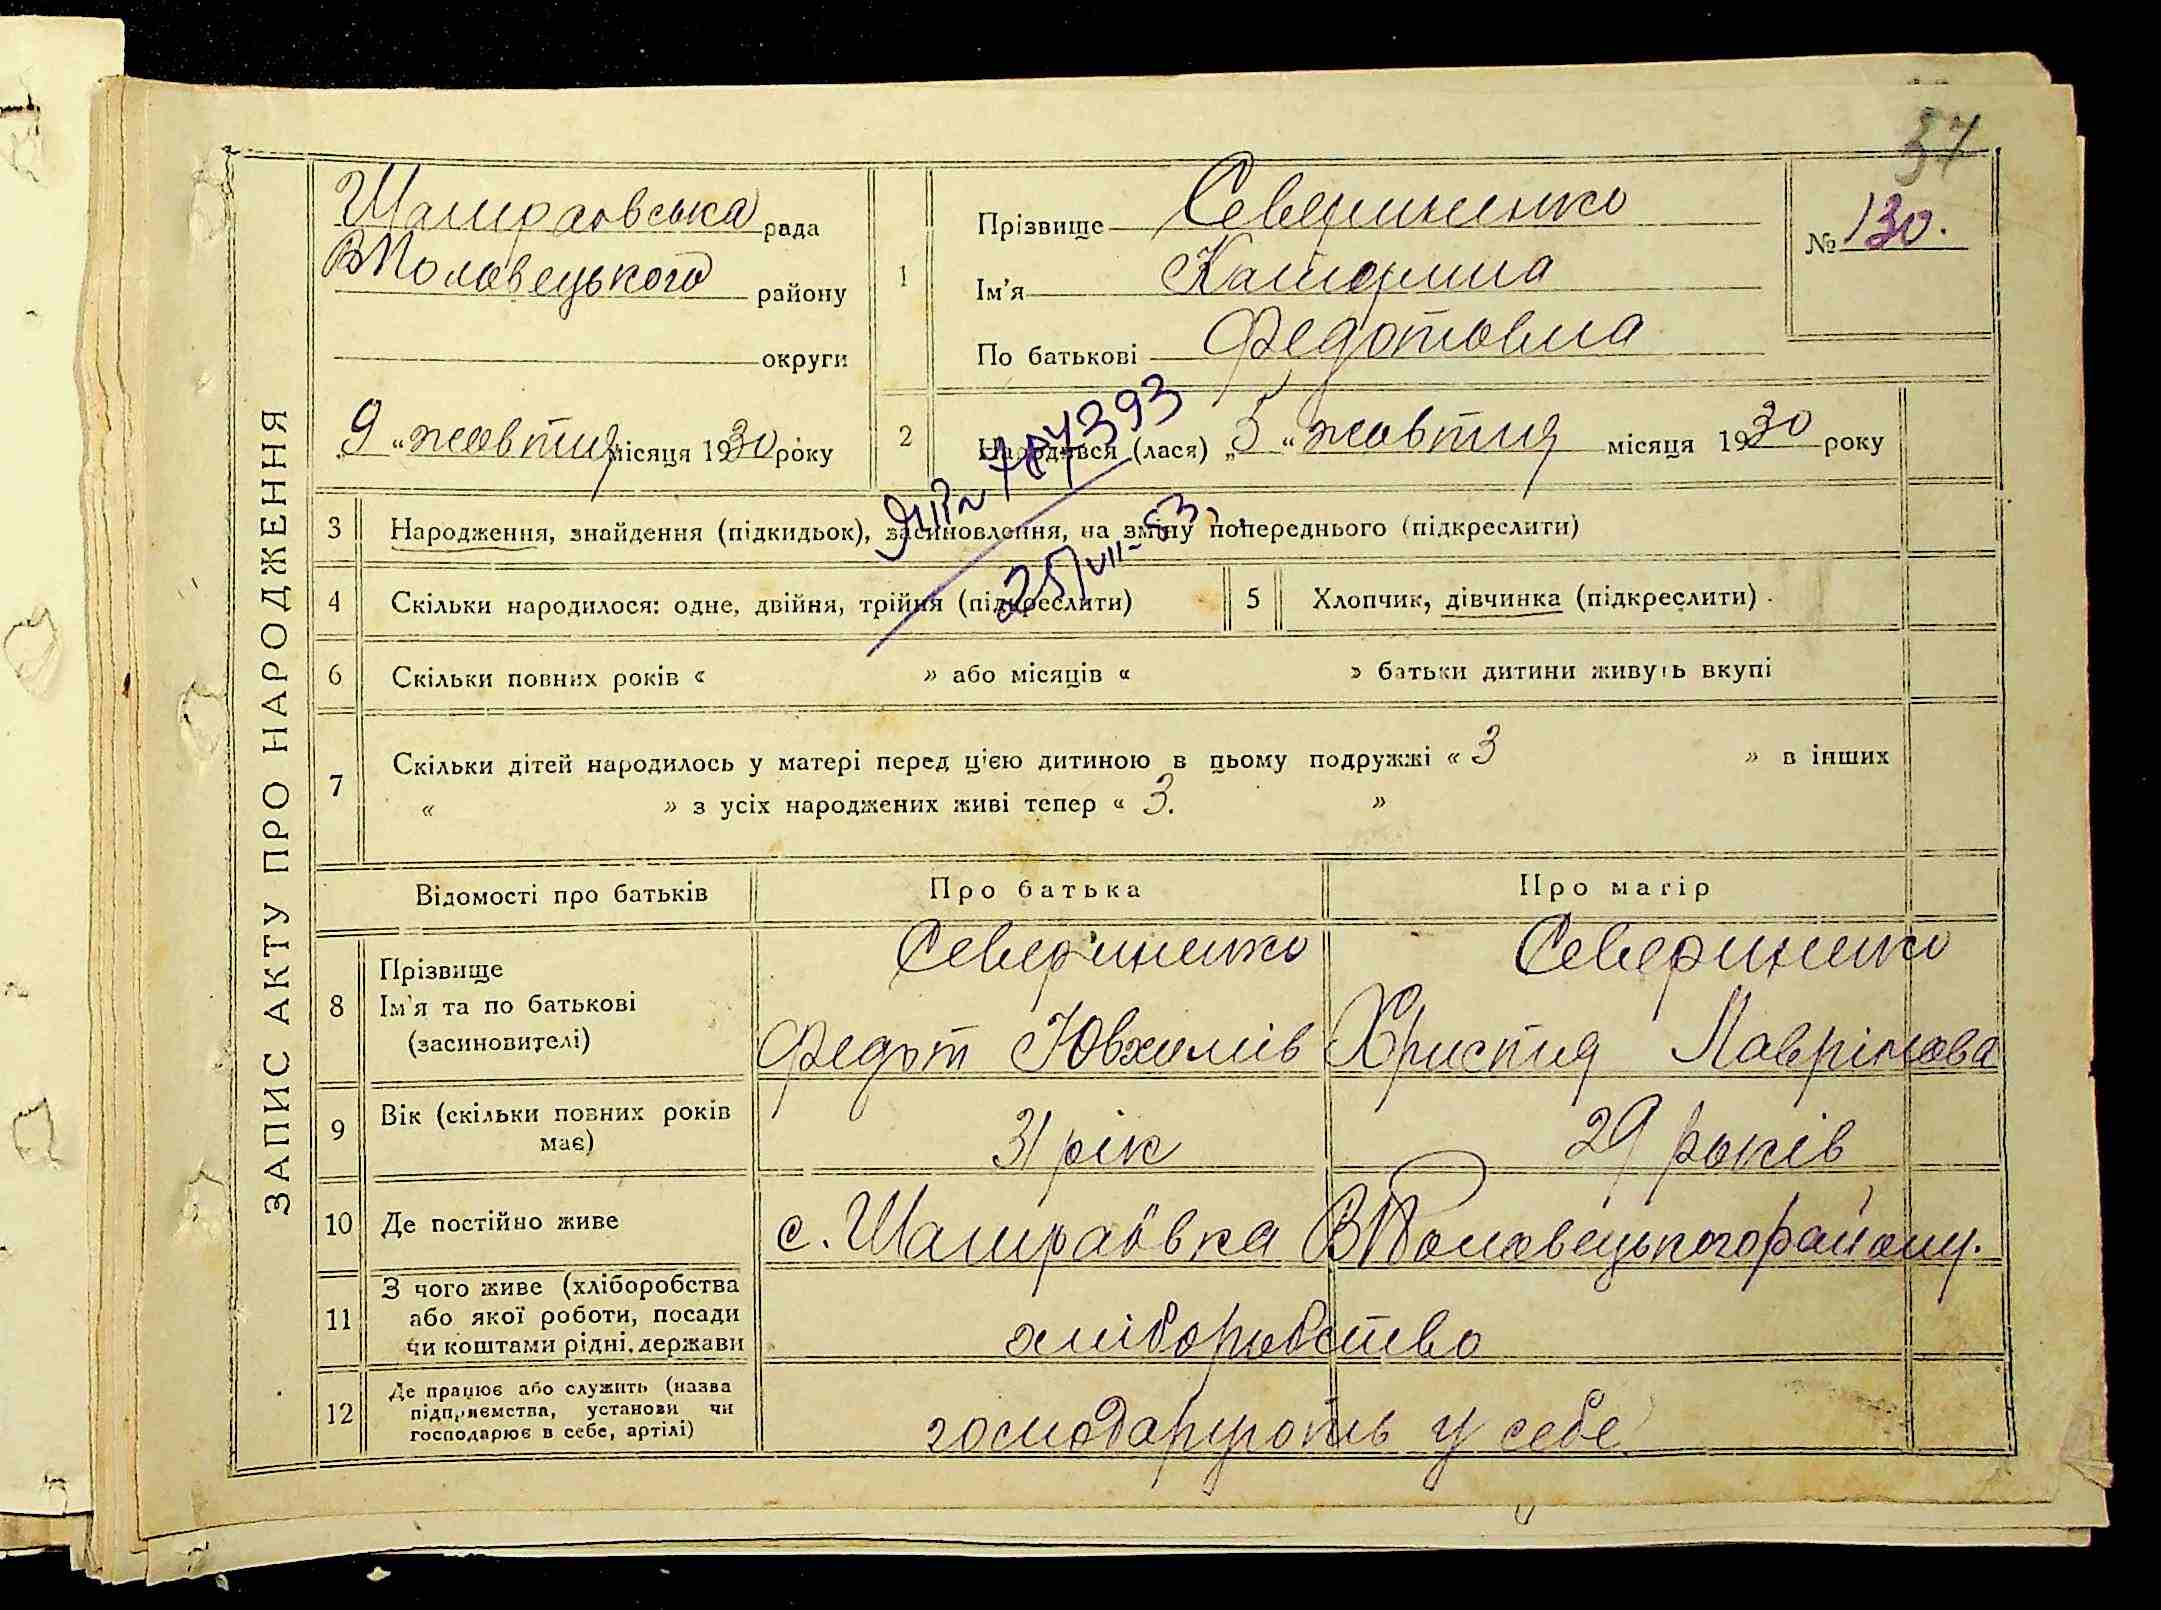 57
ЗАПИС АКТУ ПРО НАРОДЖЕННЯ
Шамраовська рада
ВПоловецького району
округи
9 „ жовтня місяця 1930 року
1
Прізвище Севериненко
Ім'я Катерина
По батькові Федотовна
№ 130.
2
Народився (лася) „ 5 “ жовтня місяця 1930 року
3 Народження, знайдення (підкидьок), засиновлення, на зміну попереднього (підкреслити)
25/VII-53.
4 Скільки народилося: одне, двійня, трійня (підкреслити)
5 Хлопчик, дівчинка (підкреслити)
6 Скільки повних років « » або місяців « » батьки дитини живуть вкупі
7 Скільки дітей народилось у матері перед цією дитиною в цьому подружжі « 3 » в інших
« » з усіх народжених живі тепер « 3. »
Відомості про батьків Про батька Про матір
8 Прізвище
Ім'я та по батькові
(засиновителі)
Севериненко
Федот Ювхимів
Севериненко
Христия Лаврінова
9 Вік (скільки повних років
має)
31 рік
29 років
10 Де постійно живе
с. Шамраовка ВПоловецького району.
11 З чого живе (хліборобства
або якої роботи, посади
чи коштами рідні, держави
хліборобство
12 Де працює або служить (назва
підприємства, установи чи
господарює в себе, артілі)
господарують у себе